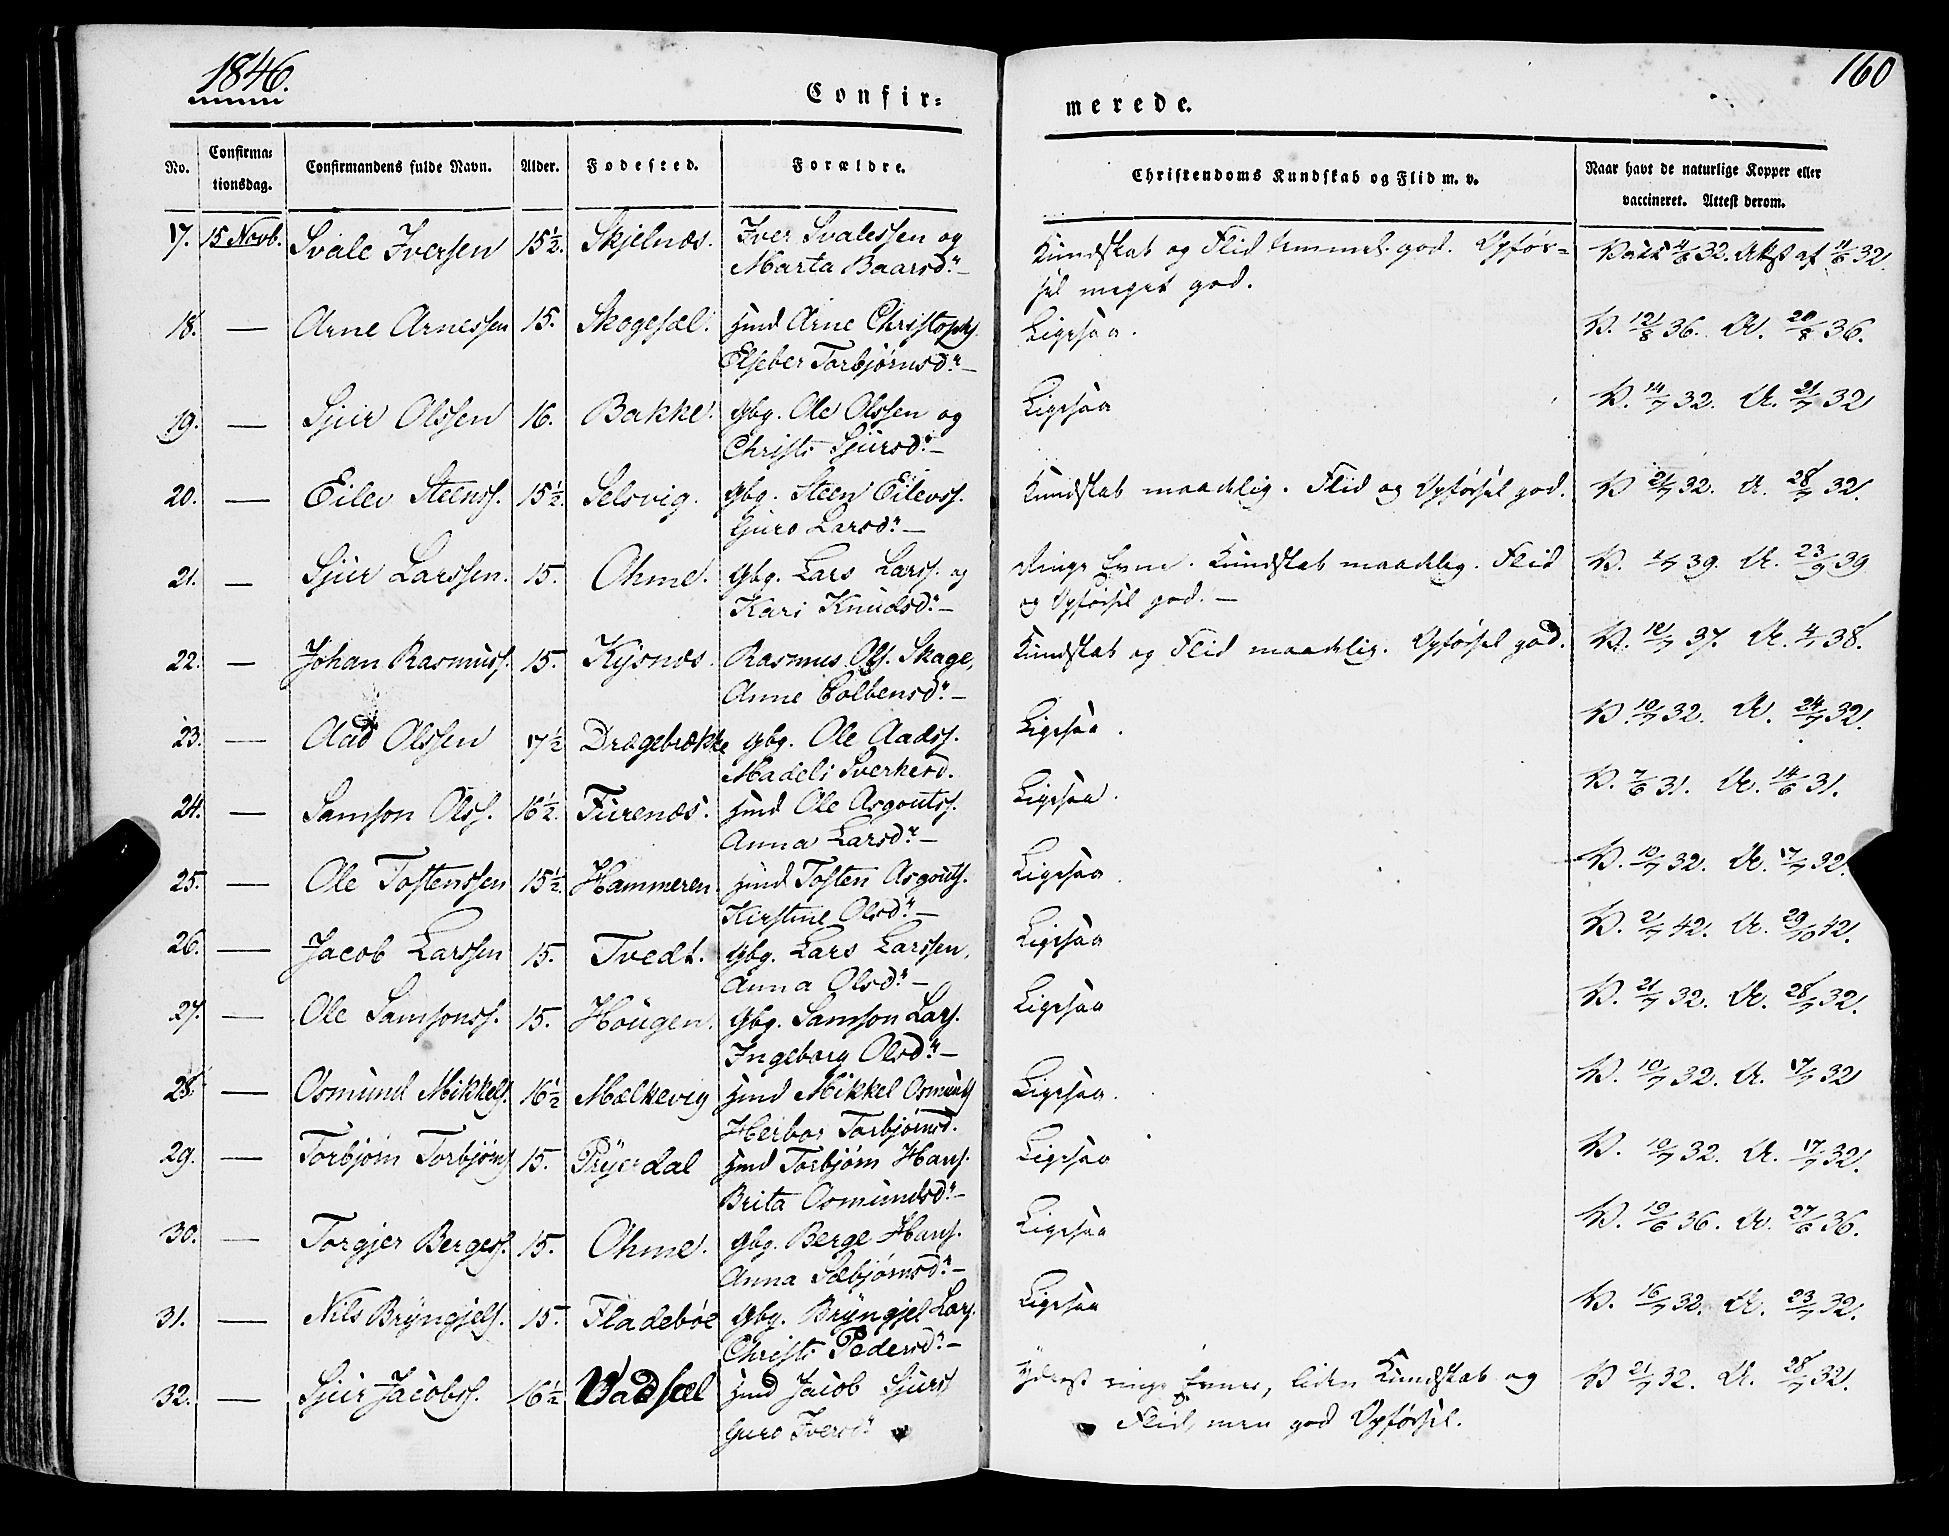 1846.
160
Confir-
merede.
No.
Confirma-
tionsdag.
Confirmandens fulde Navn.
Alder.
Fødested.
Forældre.
Christendoms Kundskab og Flid m. v.
Naar havt de naturlige Kopper eller
vaccineret. Attest derom.
17. 15 Novb. Svale Iversen 15½. Skjelnæs. Iver Svalessen og
Marta Baarsd.
Kundskab og Flid temmel. god. Opfør-
sel meget god.
Vacc 4/6 32. Attst af 11/6 32.
18. — Arne Arnessen 15. Skogesæl. Hmd Arne Christoph.
Elseber Torbjørnsdr. —
Ligesaa.
V. 12/8 36. A. 20/8 36.
19. — Sjur Olssen 16. Bakke. Gbg. Ole Olssen og
Christi Sjursdr. —
Ligesaa
V. 14/7 32. A. 21/7 32
20. — Eilev Steenss. 15½. Selsvig. Gbg. Steen Eilevss.
Guro Larsdr. —
Kundskab maadelig. Flid og Opførsel god.
V 21/7 32. A. 28/7 32.
21. — Sjur Larssen. 15. Ohme. Gbg. Lars Larss. og
Kari Knudsdr. —
Ringe Evne. Kundskab maadelig. Flid
og Opførsel god. —
V. 39. A. 23/9 39
22. — Johan Rasmuss. 15. Kysnæs. Rasmus Ols. Skage,
Anne Colbensdr. —
Kundskab og Flid maadelig. Opførsel god.
V. 37. A. 38.
23. — Aad Olssen 17½ Drægebrække Gbg. Ole Aadss.
Madeli Sverkesd.
Ligesaa.
V. 10/7 32. A. 24/7 32.
24. — Samson Olss. 16½. Furenæs. Hmd Ole Asgoutss.
Anna Larsdr. —
Ligesaa.
V. 7/6 31. A. 14/6 31.
25. — Ole Tostenssen 15½. Hammeren. Hmd Tosten Asgouts.
Kirstine Olsdr. —
Ligesaa.
V. 10/7 32. A. 17/7 32.
26. — Jacob Larssen 15. Tvedt. Gbg. Lars Larssen,
Anna Olsdr. —
Ligesaa
V. 42. A. 29/10 42.
27. — Ole Samsonss. 15. Hougen. Gbg. Samson Lars.
Ingeborg Olsdr. —
Ligesaa
V. 21/7 32. A. 28/7 32.
28. — Osmund Mikkels. 16½ Mælkevig Hmd Mikkel Osmunds
Herbor Torbjørnsd.
Ligesaa.
V. 10/7 32. A. 17/7 32
29. — Torbjørn Torbjørns 15. Pryerdal Hmd Torbjørn Hans.
Brita Osmundsdr. —
Ligesaa
V. 10/7 32. A. 17/7 32.
30. — Torgjer Bergess. 15. Ohme. Gbg. Berge Hans.
Anna Sæbjørnsdr. —
Ligesaa
V. 19/6 36. A. 27/6 36.
31. — Nils Bryngjels. 15. Fladebøe Gbg. Bryngjel Lars.
Christi Pedersdr. —
Ligesaa
V. 16/7 32. A. 23/7 32.
32. — Sjur Jacobss. 16½ Vadsæl Hmd Jacob Sjurs
Guro Iversdr
Yderst ringe Evner, liden Kundskab og
Flid, men god Opførsel.
V 21/7 32. A. 28/7 32.